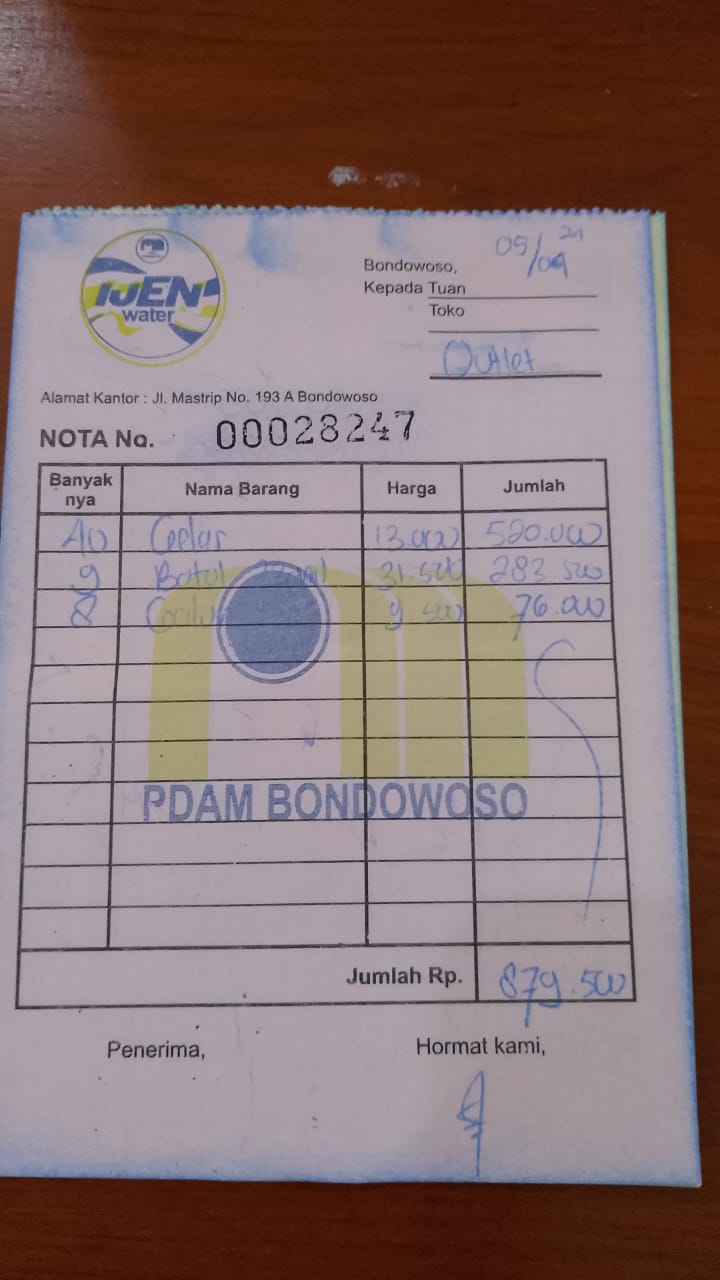 IJEN
water
Bondowoso, 05/09 21
Kepada Tuan
Toko
Outlet
Alamat Kantor : Jl. Mastrip No. 193 A Bondowoso
NOTA No. 00028247
Banyak nya Nama Barang Harga Jumlah
40 Gelas 13.000 520.000
9 Botol 31.500 283.500
8 9.500 76.000
PDAM BONDOWOSO
Jumlah Rp. 879.500
Penerima, Hormat kami,